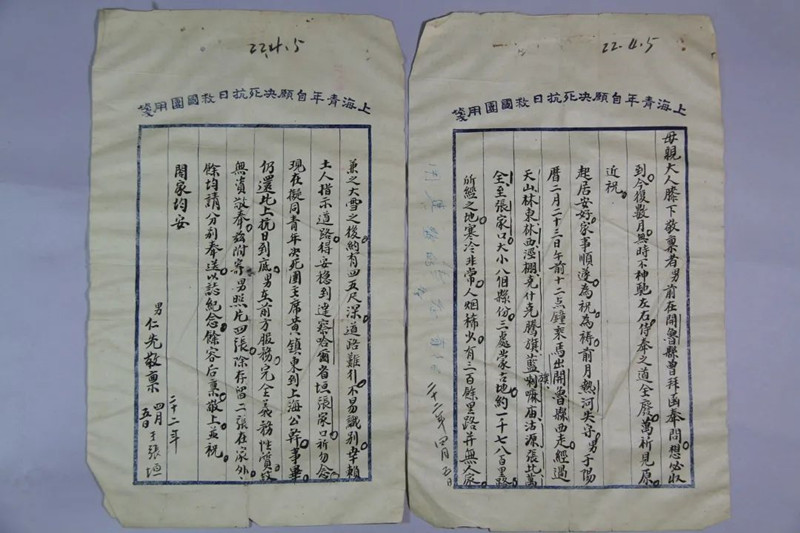 22.4.5
上海青年自願决死抗日救國團用箋
母親大人膝下敬禀者男前在開魯縣曾拜函奉問想必收
到今復數月無時不神馳左右侍奉之道全廢萬祈見原
近祝
起居安好家事順遂為祝為禱前月熱河失守男于陽
曆二月二十三日午前十二点鐘乘馬出開魯縣西走經過
天山林東林西經棚克什克騰旗藍旗喇嘛庙沽源張北萬
全至張家口大小八佰縣份三處蒙古地約一千七八百里路
所經之地寒冷非常人烟稀少有二百餘里路并無人家
二十二年四月五日
22.4.5
上海青年自願决死抗日救國團用箋
兼之大雪之後約有四五尺深道路難引不易識别幸賴
土人指示道路得安穩到達察哈爾省垣張家口祈勿念
現在擬同青年决死團主席黄鎮東到上海公幹事畢
仍還北上抗日到底男在前方服務完全義務性質故
無漬敬奉兹附寄男照片四張除存留二張在家外
餘均請分别奉送以誌紀念餘容后禀敬上并祝
闔家均安
男仁先敬禀
二十二年四月五日于張垣